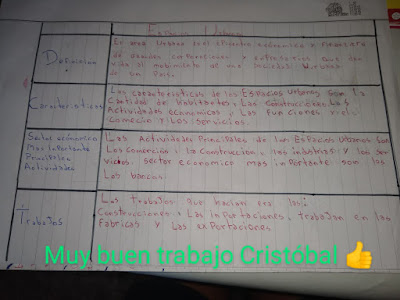 Espacio Urbano
Definicion
Es area Urbana
economico o financiero
de grandes corporaciones o
vida al movimiento de una sociedad Urbana
de un Pais.
Caracteristicas
Las caracteristicas de los Espacios Urbanos son la
Cantidad de habitantes, Las Construcciones, Las
Actividades economicas, Las Funciones
comercio y los servicios.
Sector economico
Mas Importante
Principales
Actividades
Las Actividades Principales de los Espacios Urbanos son
Los comercios, La Construccion, Las industrias y Los ser
vicios. Sector economico mas inportante son los
Las bancios.
Trabajos
Los trabajos que hacian era las:
Construcciones, Las Inportaciones, trabajan en las
Fabricas y Las xxPortaciones
Muy buen trabajo Cristóbal 👍